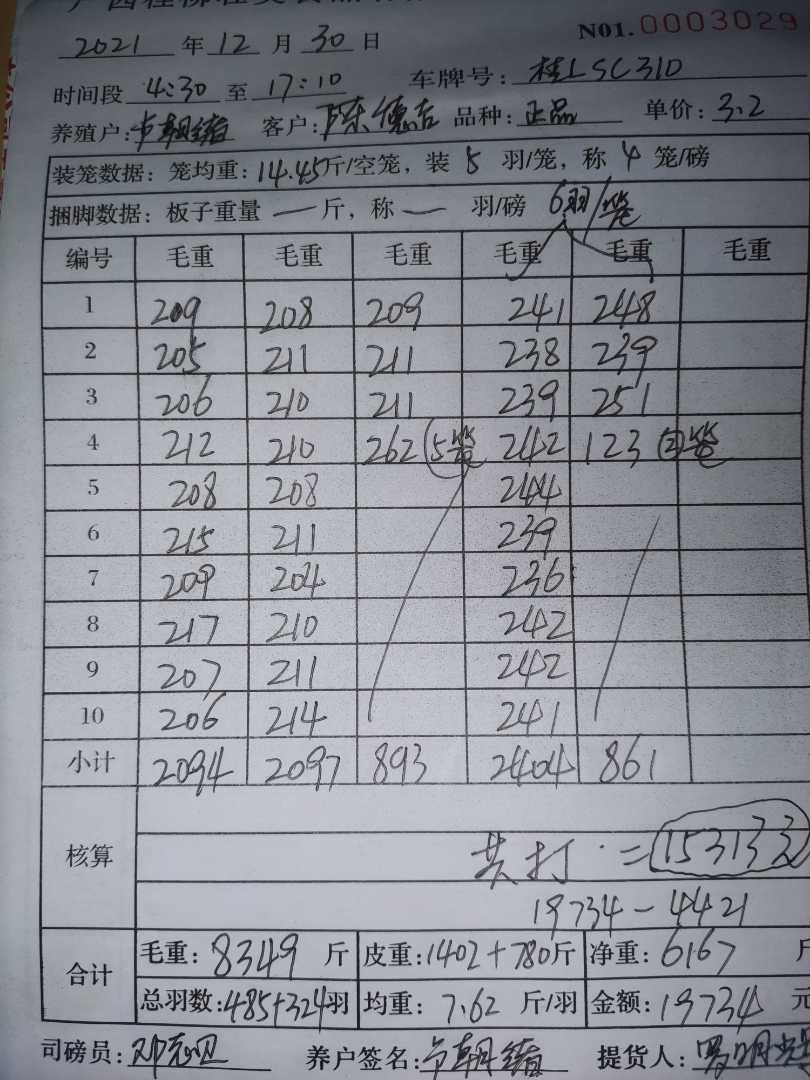 2021 年 12 月 30 日 N01.0003029
时间段 4:30 至 17:10 车牌号: 桂LSC310
养殖户: 客户: 陈德吉 品种: 正品 单价: 3.2
装笼数据: 笼均重: 14.45斤/空笼, 装 5 羽/笼, 称 4 笼/磅
捆脚数据: 板子重量 — 斤, 称 — 羽/磅 6羽/笼
编号 毛重 毛重 毛重 毛重 毛重 毛重
1 209 208 209 241 248
2 205 211 211 238 239
3 206 210 211 239 251
4 212 210 262 5笼 242 123 2笼
5 208 208 244
6 215 211 239
7 209 204 236
8 217 210 242
9 207 211 242
10 206 214 241
小计 2094 2097 893 2404 861
核算
共打 = 15313
19734-4421
合计 毛重: 8349 斤 皮重: 1402+780斤 净重: 6167 斤
总羽数: 485+324羽 均重: 7.62 斤/羽 金额: 19734 元
司磅员: 养户签名: 提货人: